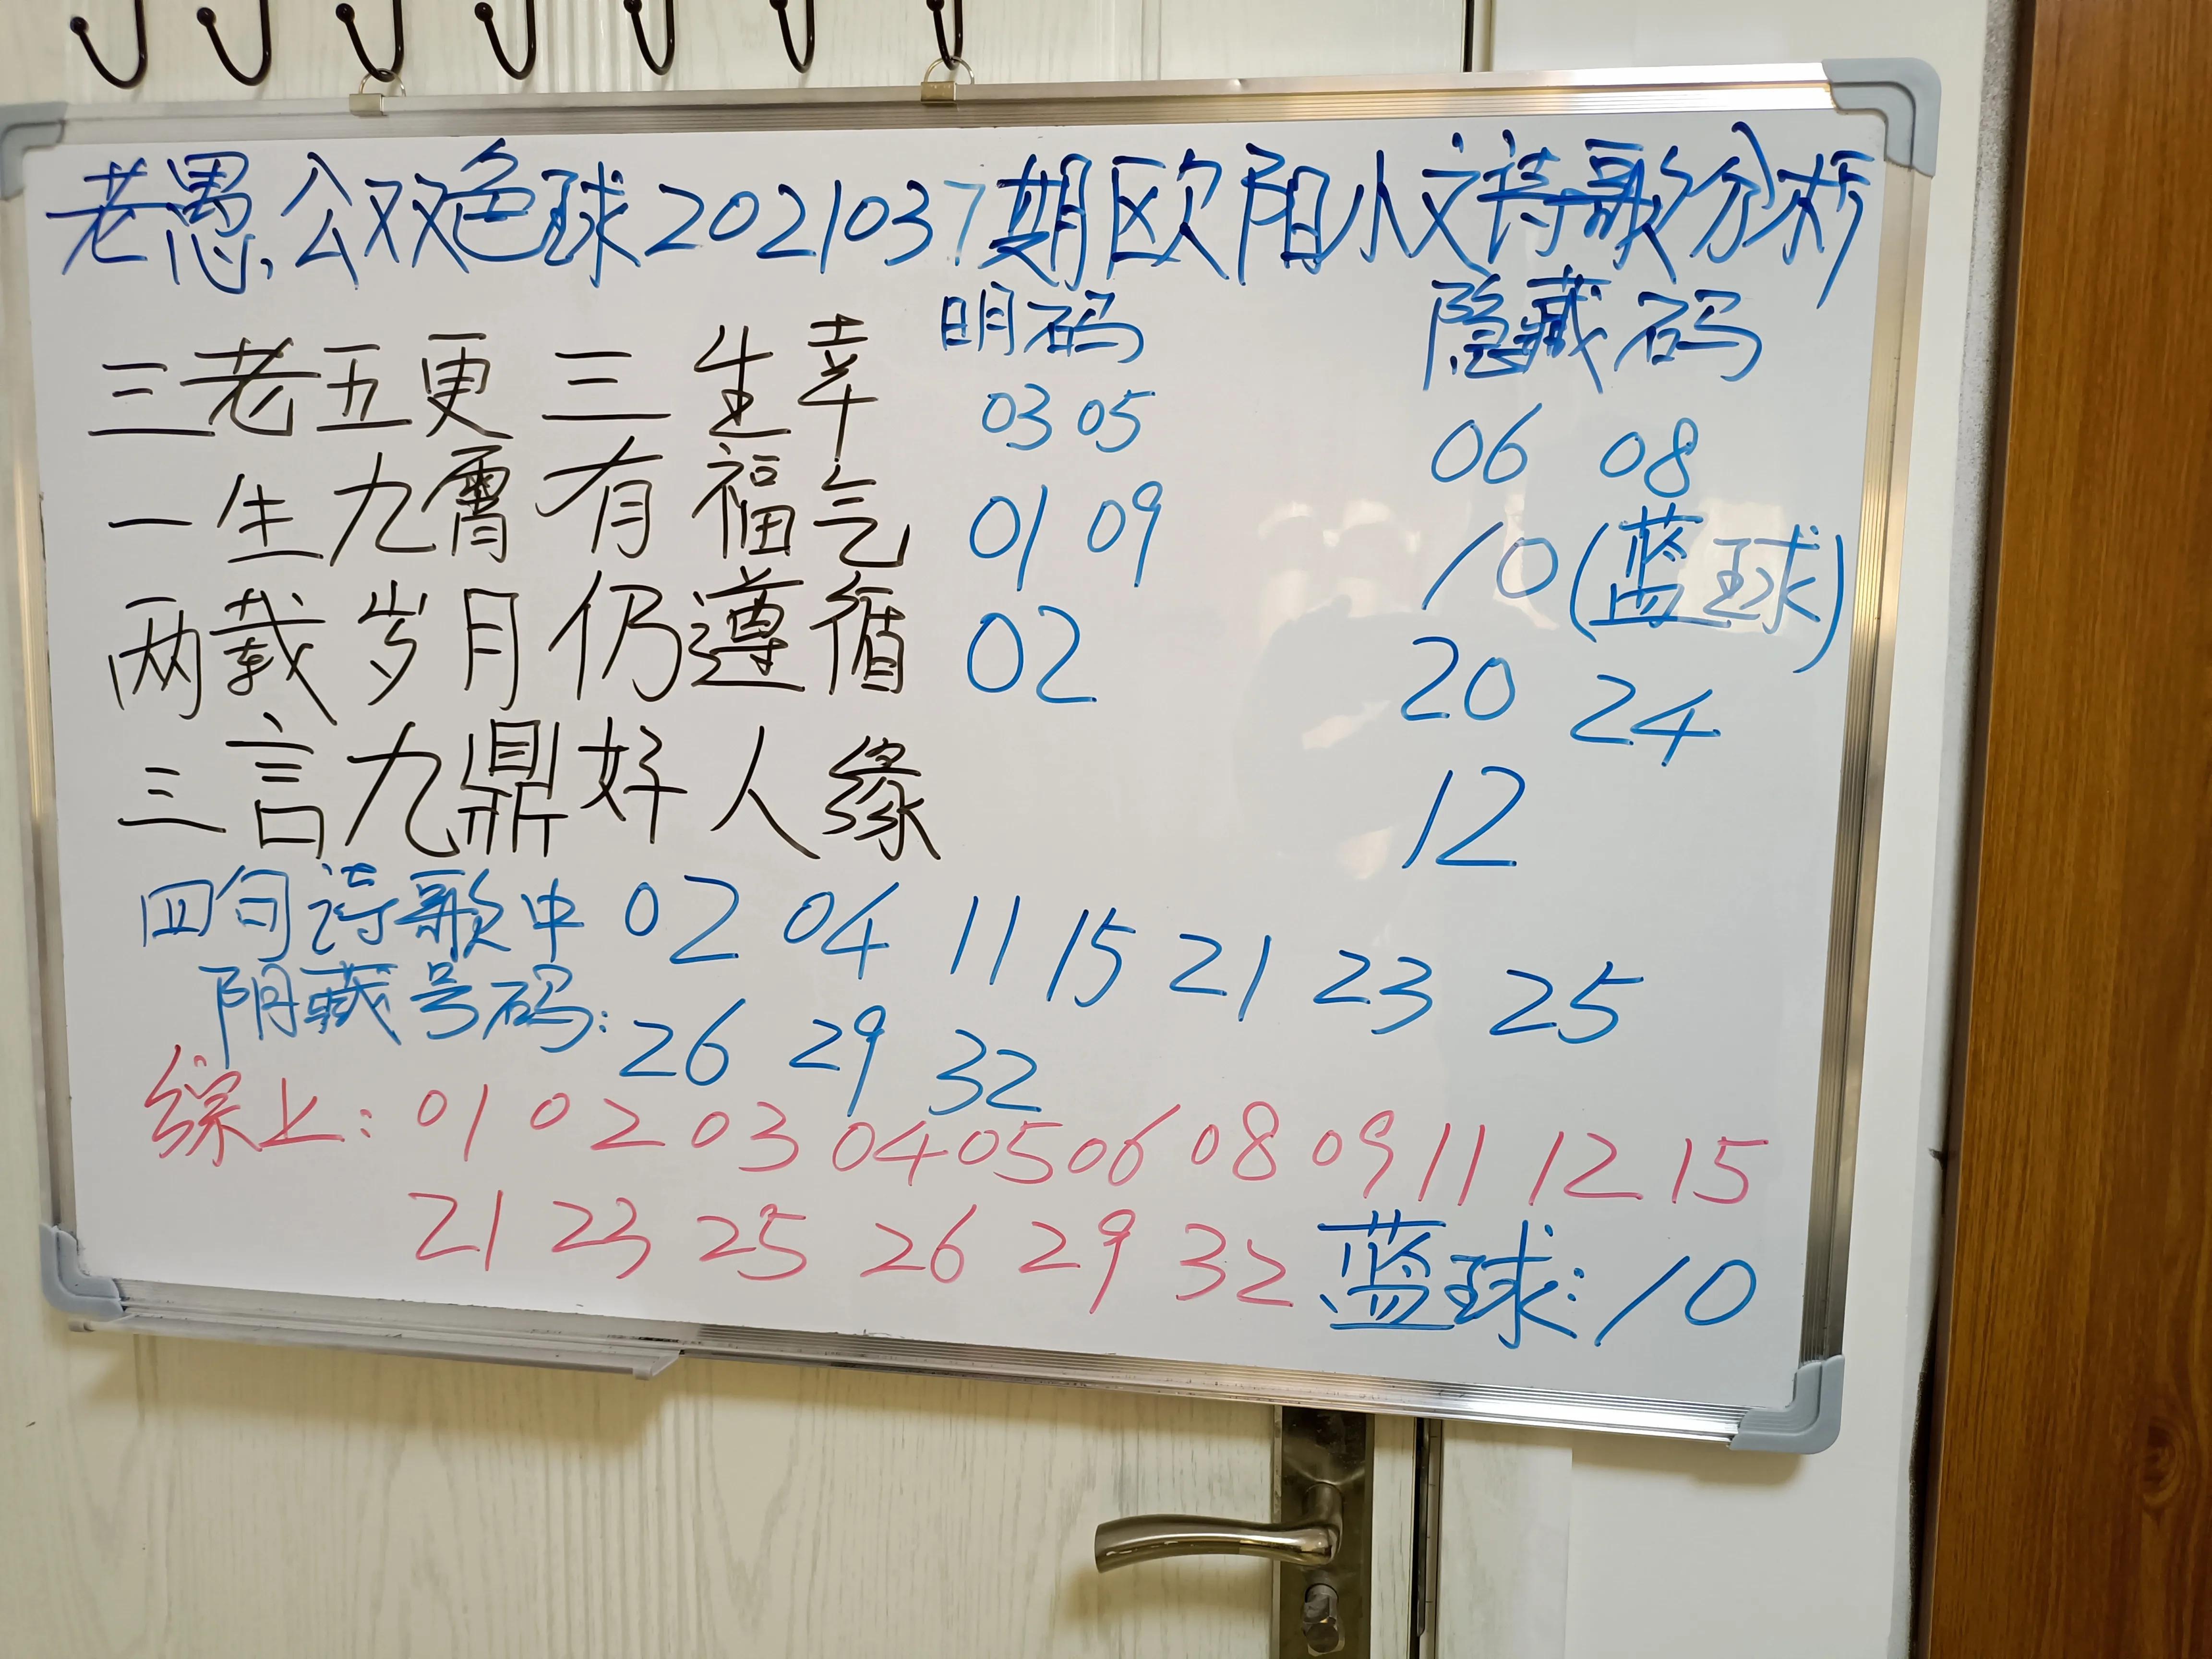 老愚公双色球2021037期欧阳小文诗歌分析
明码 隐藏码
三老五更三生幸 03 05 06 08
一生九霄有福气 01 09 10(蓝球)
两载岁月仍遵循 02 20 24
三言九鼎好人缘 12
四句诗歌中 02 04 11 15 21 23 25
阴藏号码: 26 29 32
综上: 01 02 03 04 05 06 08 09 11 12 15
21 23 25 26 29 32 蓝球: 10